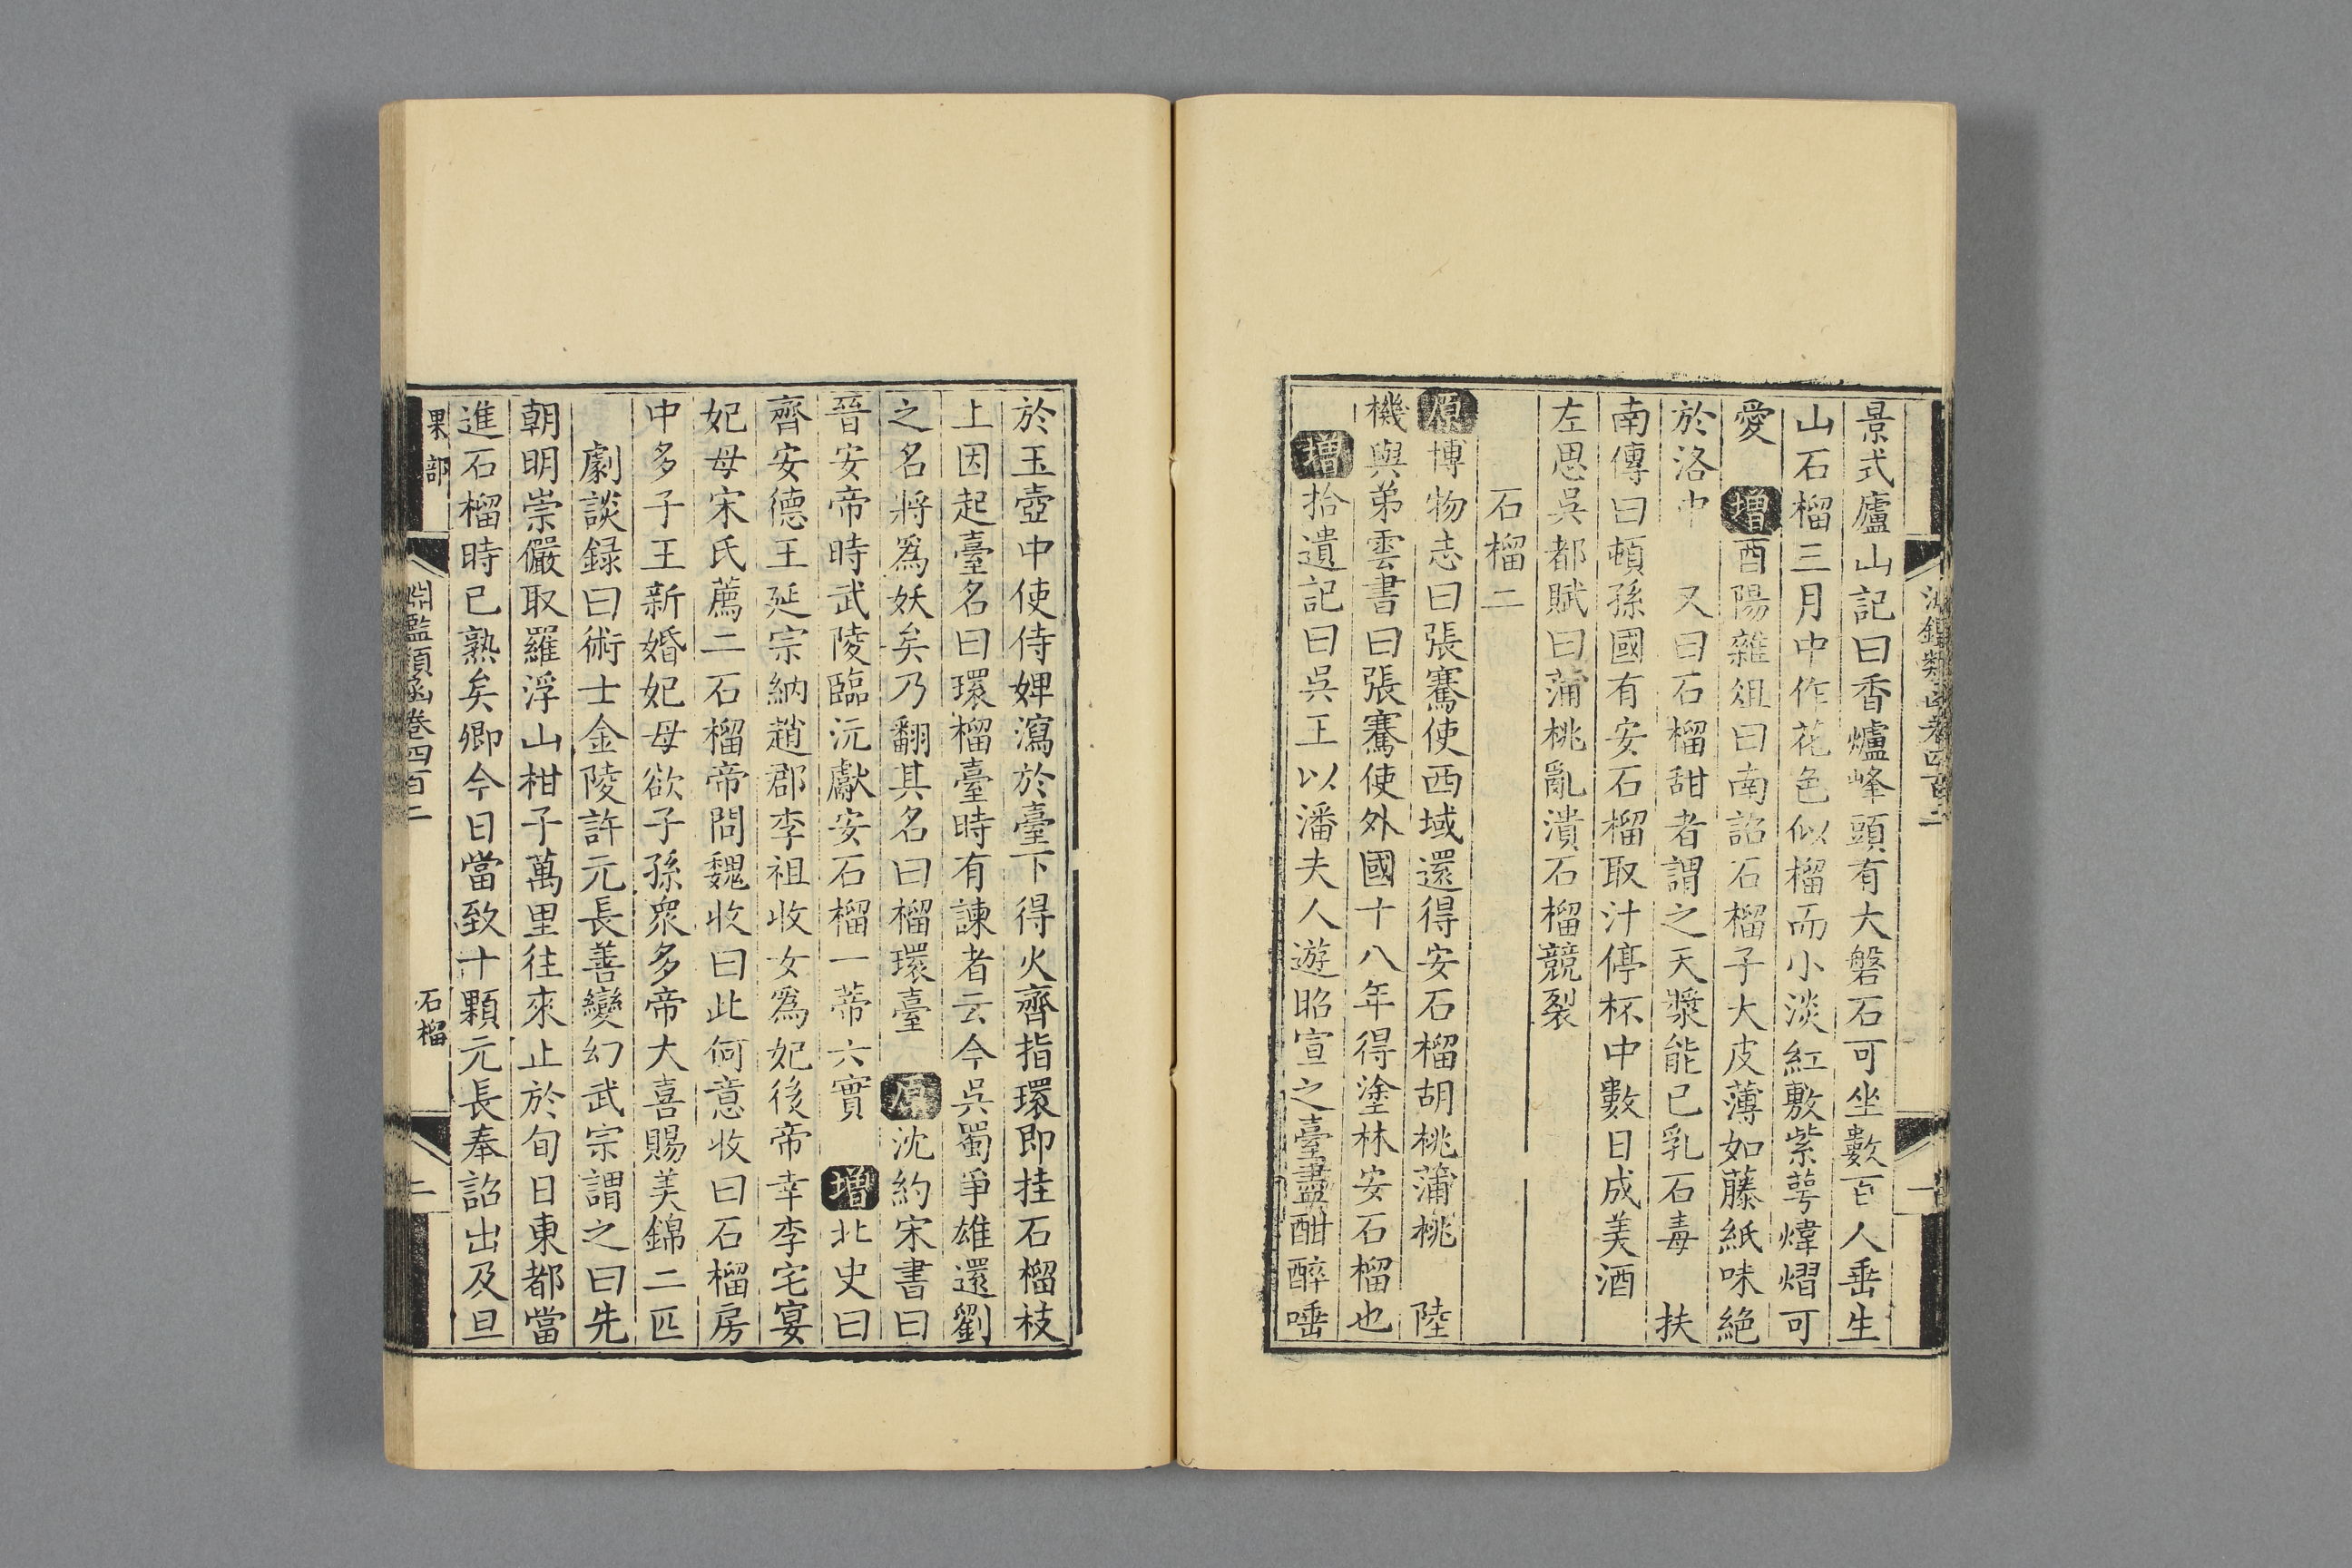 景式廬山記曰香爐峰頭有大磐石可坐數百人垂生
山石榴三月中作花色似榴而小淡紅敷紫萼煒熠可
愛 增酉陽雜俎曰南詔石榴子大皮薄如藤紙味絕
於洛中 又曰石榴甜者謂之天漿能已乳石毒 扶
南傳曰頓孫國有安石榴取汁停杯中數日成美酒
左思吳都賦曰蒲桃亂潰石榴競裂
石榴二
原博物志曰張騫使西域還得安石榴胡桃蒲桃 陸
機與弟雲書曰張騫使外國十八年得塗林安石榴也
增拾遺記曰吳王以潘夫人遊昭宣之臺盡酣醉唾
於玉壺中使侍婢瀉於臺下得火齊指環即挂石榴枝
上因起臺名曰環榴臺時有諫者云今吳蜀爭雄還劉
之名將爲妖矣乃翻其名曰榴環臺 原沈約宋書曰
晉安帝時武陵臨沅獻安石榴一蒂六實 增北史曰
齊安德王延宗納趙郡李祖收女爲妃後帝幸李宅宴
妃母宋氏薦二石榴帝問魏收曰此何意收曰石榴房
中多子王新婚妃母欲子孫衆多帝大喜賜美錦二匹
劇談録曰術士金陵許元長善變幻武宗謂之曰先
朝明崇儼取羅浮山柑子萬里往來止於旬日東都當
進石榴時已熟矣卿今日當致十顆元長奉詔出及旦
果部 淵鑑類函卷四百二 石榴 二